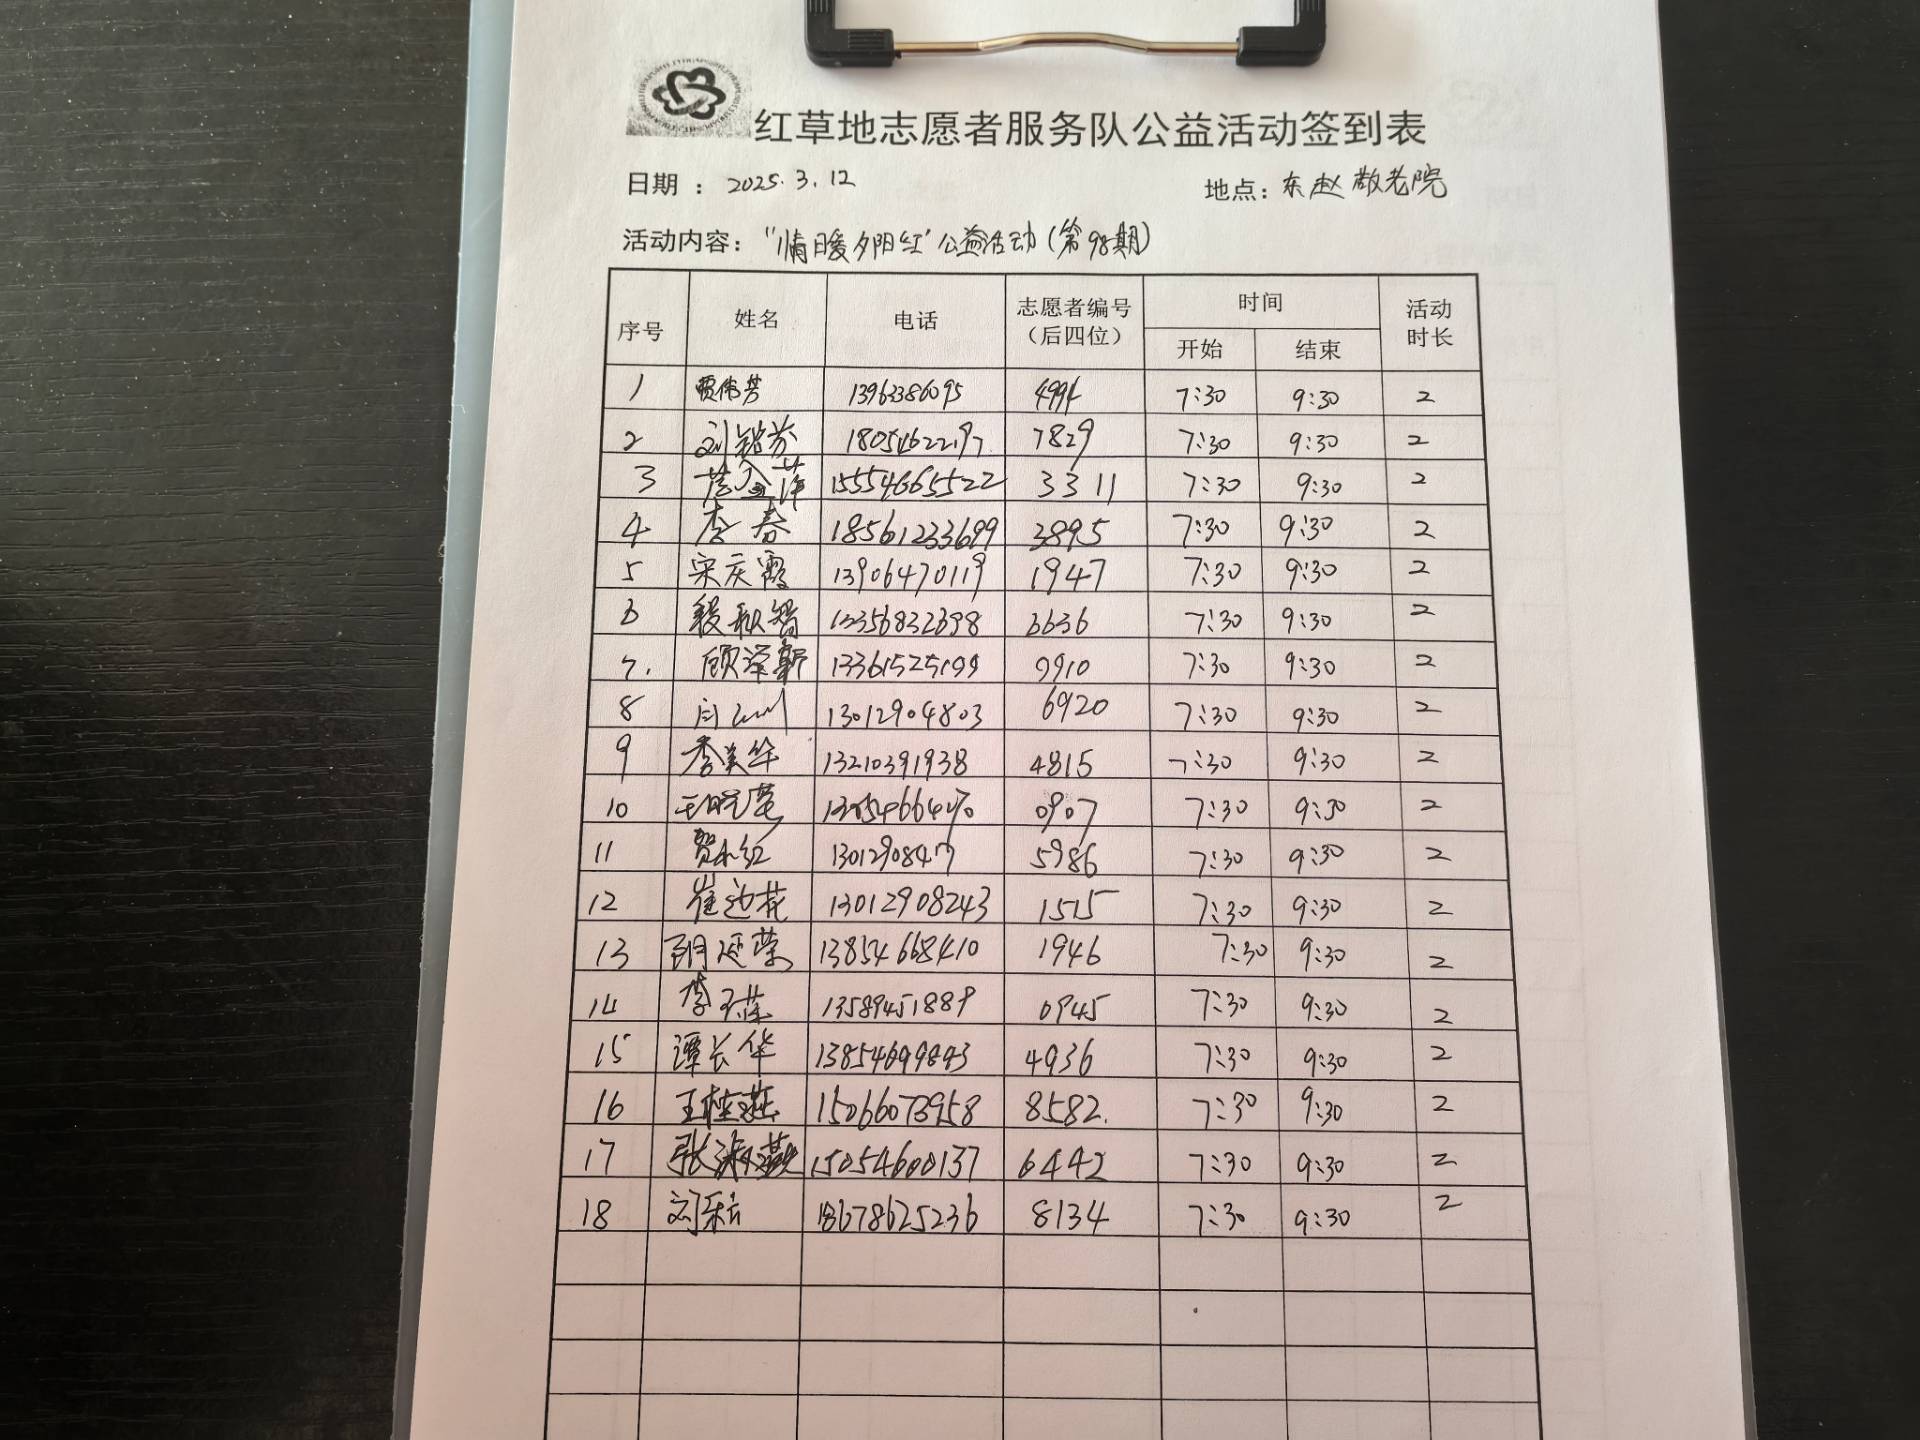 红草地志愿者服务队公益活动签到表
日期 : 2025.3.12 地点: 东赵敬老院
活动内容: "情暖夕阳红"公益活动(第98期)
序号 姓名 电话 志愿者编号 (后四位) 时间 开始 结束 活动时长
1 贾伟芳 13963386095 4994 7:30 9:30 2
2 18054622197 7829 7:30 9:30 2
3 15554665522 3311 7:30 9:30 2
4 李春 18561233699 3895 7:30 9:30 2
5 宋庆霞 13906470119 1947 7:30 9:30 2
6 6636 7:30 9:30 2
7. 顾泽新 13361525199 9910 7:30 9:30 2
8 13012904803 6920 7:30 9:30 2
9 李美华 13210391938 4815 7:30 9:30 2
10 0907 7:30 9:30 2
11 贺小红 5986 7:30 9:30 2
12 崔迎花 13012908243 1515 7:30 9:30 2
13 13854668410 1946 7:30 9:30 2
14 13589451889 0945 7:30 9:30 2
15 谭长华 4936 7:30 9:30 2
16 王桂燕 15066073958 8582. 7:30 9:30 2
17 张淑燕 15054600137 6442 7:30 9:30 2
18 18678625236 8134 7:30 9:30 2